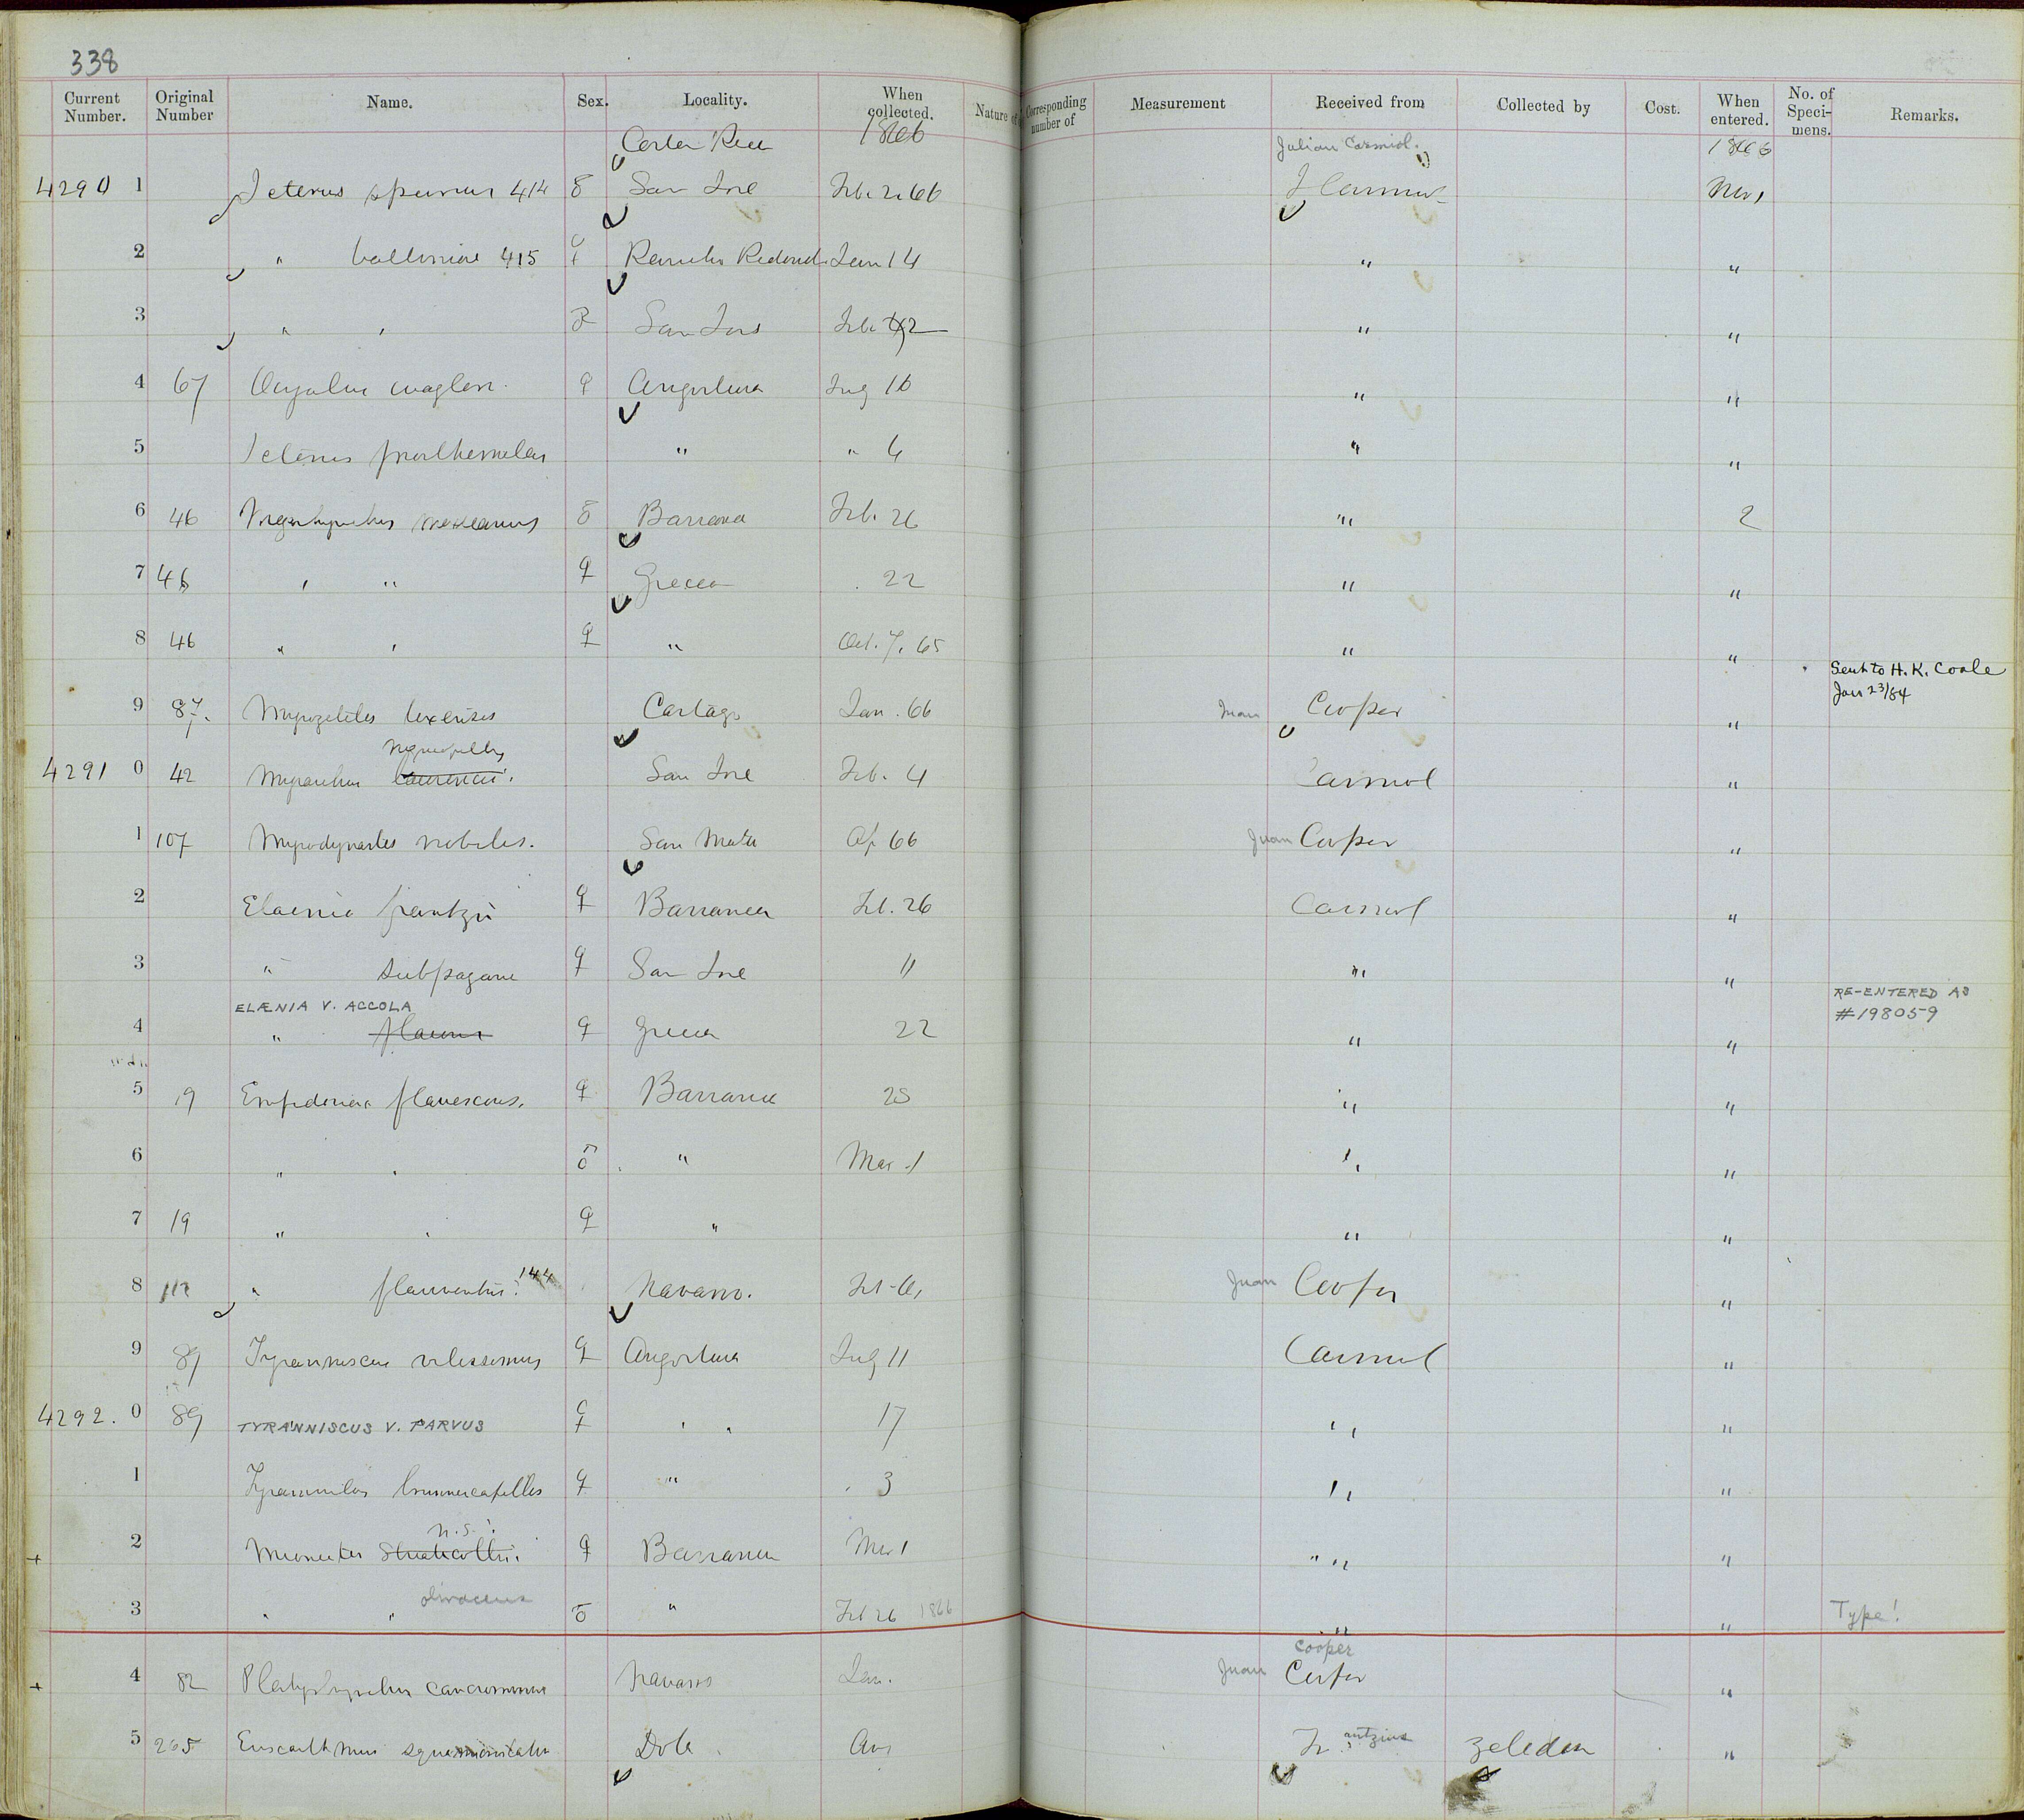 338
Current Number. Original Number Name. Sex. Locality. When collected. Nature of Corresponding number of Measurement Received from Collected by Cost. When entered. No. of Speci-mens. Remarks.
Costa Rica 1866 Julian Carmiol. 1866
4290 1 Icterus spurius 414 ♂ San Jose Feb. 2. 66 J Carmiol Nov 1
2 " baltimore 415 ♀ Rancho Redondo Jan 14 " "
3 " " San Jose Feb 2 " "
4 67 Ocyalus wagleri. ♀ Angostura July 16 " "
5 Icterus prosthemelas " " 4 " "
6 46 megarhynchus mexicanus ♂ Barranca Feb. 26 " 2
7 46 " " ♀ Grecia . 22 " "
8 46 " " ♀ " Oct. 7. 65 " "
Sent to H. K. Coale
Jan 23/84
9 87. Myiozetetes texensis Cartago Jan. 66 Juan Cooper "
nigricapillus
4291 0 42 Myiarchus lawrencii. San Jose Feb. 4 Carmiol "
1 107 Myiodynastes nobilis. San Mateo Ap 66 Juan Cooper "
2 Elaenia frantzii ♀ Barranca Feb. 26 Carmiol "
3 " subpagana ♀ San Jose 11 " "
ELÆNIA V. ACCOLA RE-ENTERED AS
4 " ♀ Grecia 22 " " #198059
5 19 Empidonax flavescens. ♀ Barranca 25 " "
6 " " ♂ " Mar 1 " "
7 19 " " ♀ " " "
8 " flaviventris? 144 Navarro. Juan Cooper "
9 89 Tyranniscus vilissimus ♀ Angostura July 11 Carmiol "
4292. 0 89 TYRANNISCUS V. PARVUS ♀ " 17 " "
1 Tyrannulus brunneicapillus ♀ " . 3 " "
n.s.
+ 2 Mionectes striaticollis. ♀ Barranca Mar 1 " "
olivaceus
3 " " ♂ " Feb 26 1866 " " Type!
Cooper
+ 4 82 Platyrhynchus cancrominus Navarro Jan. Juan Cooper "
5 265 Euscarthmus squamicristatus Dota Frantzius Zeledon "